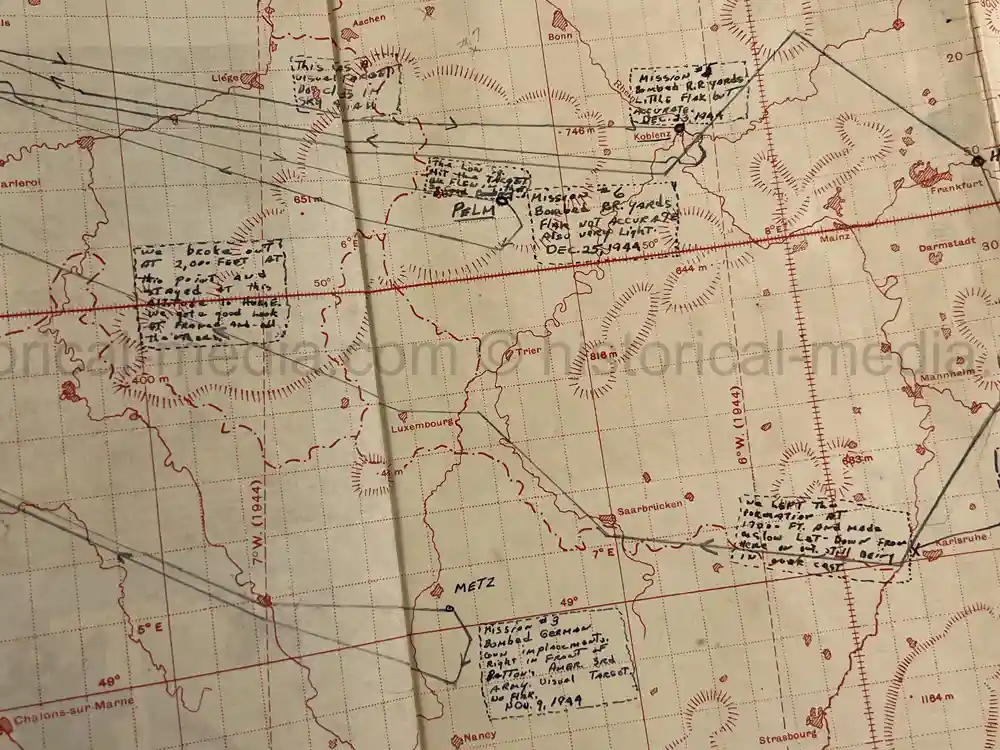 Aachen
Bonn
20
Liége
This is
visual target
SKY
MISSION #5
Bombed R.R. YARDS
Little Flak but
ACCURATE.
DEC. 23, 1944
Koblenz
746 m
50
arleroi
Frankfurt
651 m
PELM
MISSION #6
Bombed RR. YARDS
Flak NOT ACCURATE
Also very Light.
DEC. 25, 1944
50°
6°E
8°E
Mainz
Darmstadt
30
644 m
We broke out
AT 2,000 FEET AT
this point and
STAYED AT this
Altitude to HOME.
We got a good look
AT FRANCE And all
50°
orical-media.com © historical-media.
Trier
818 m
400 m
Mannheim
Luxembourg
6°W (1944)
683 m
7°W (1944)
Saarbrücken
7°E
We LEFT The
FORMATION AT
17000 FT. And MADE
A Slow LET-DOWN FROM
Here on out still Being
IN over cast
Karlsruhe
METZ
49°
5°E
MISSION #3
Bombed GERMAN
Gun implacements.
Right in Front of
PATTON'S AMER. 3RD
ARMY. Visual TARGET.
No Flak.
NOV. 9, 1944
49°
Chalons-sur Marne
1164 m
Nancy
Strasbourg